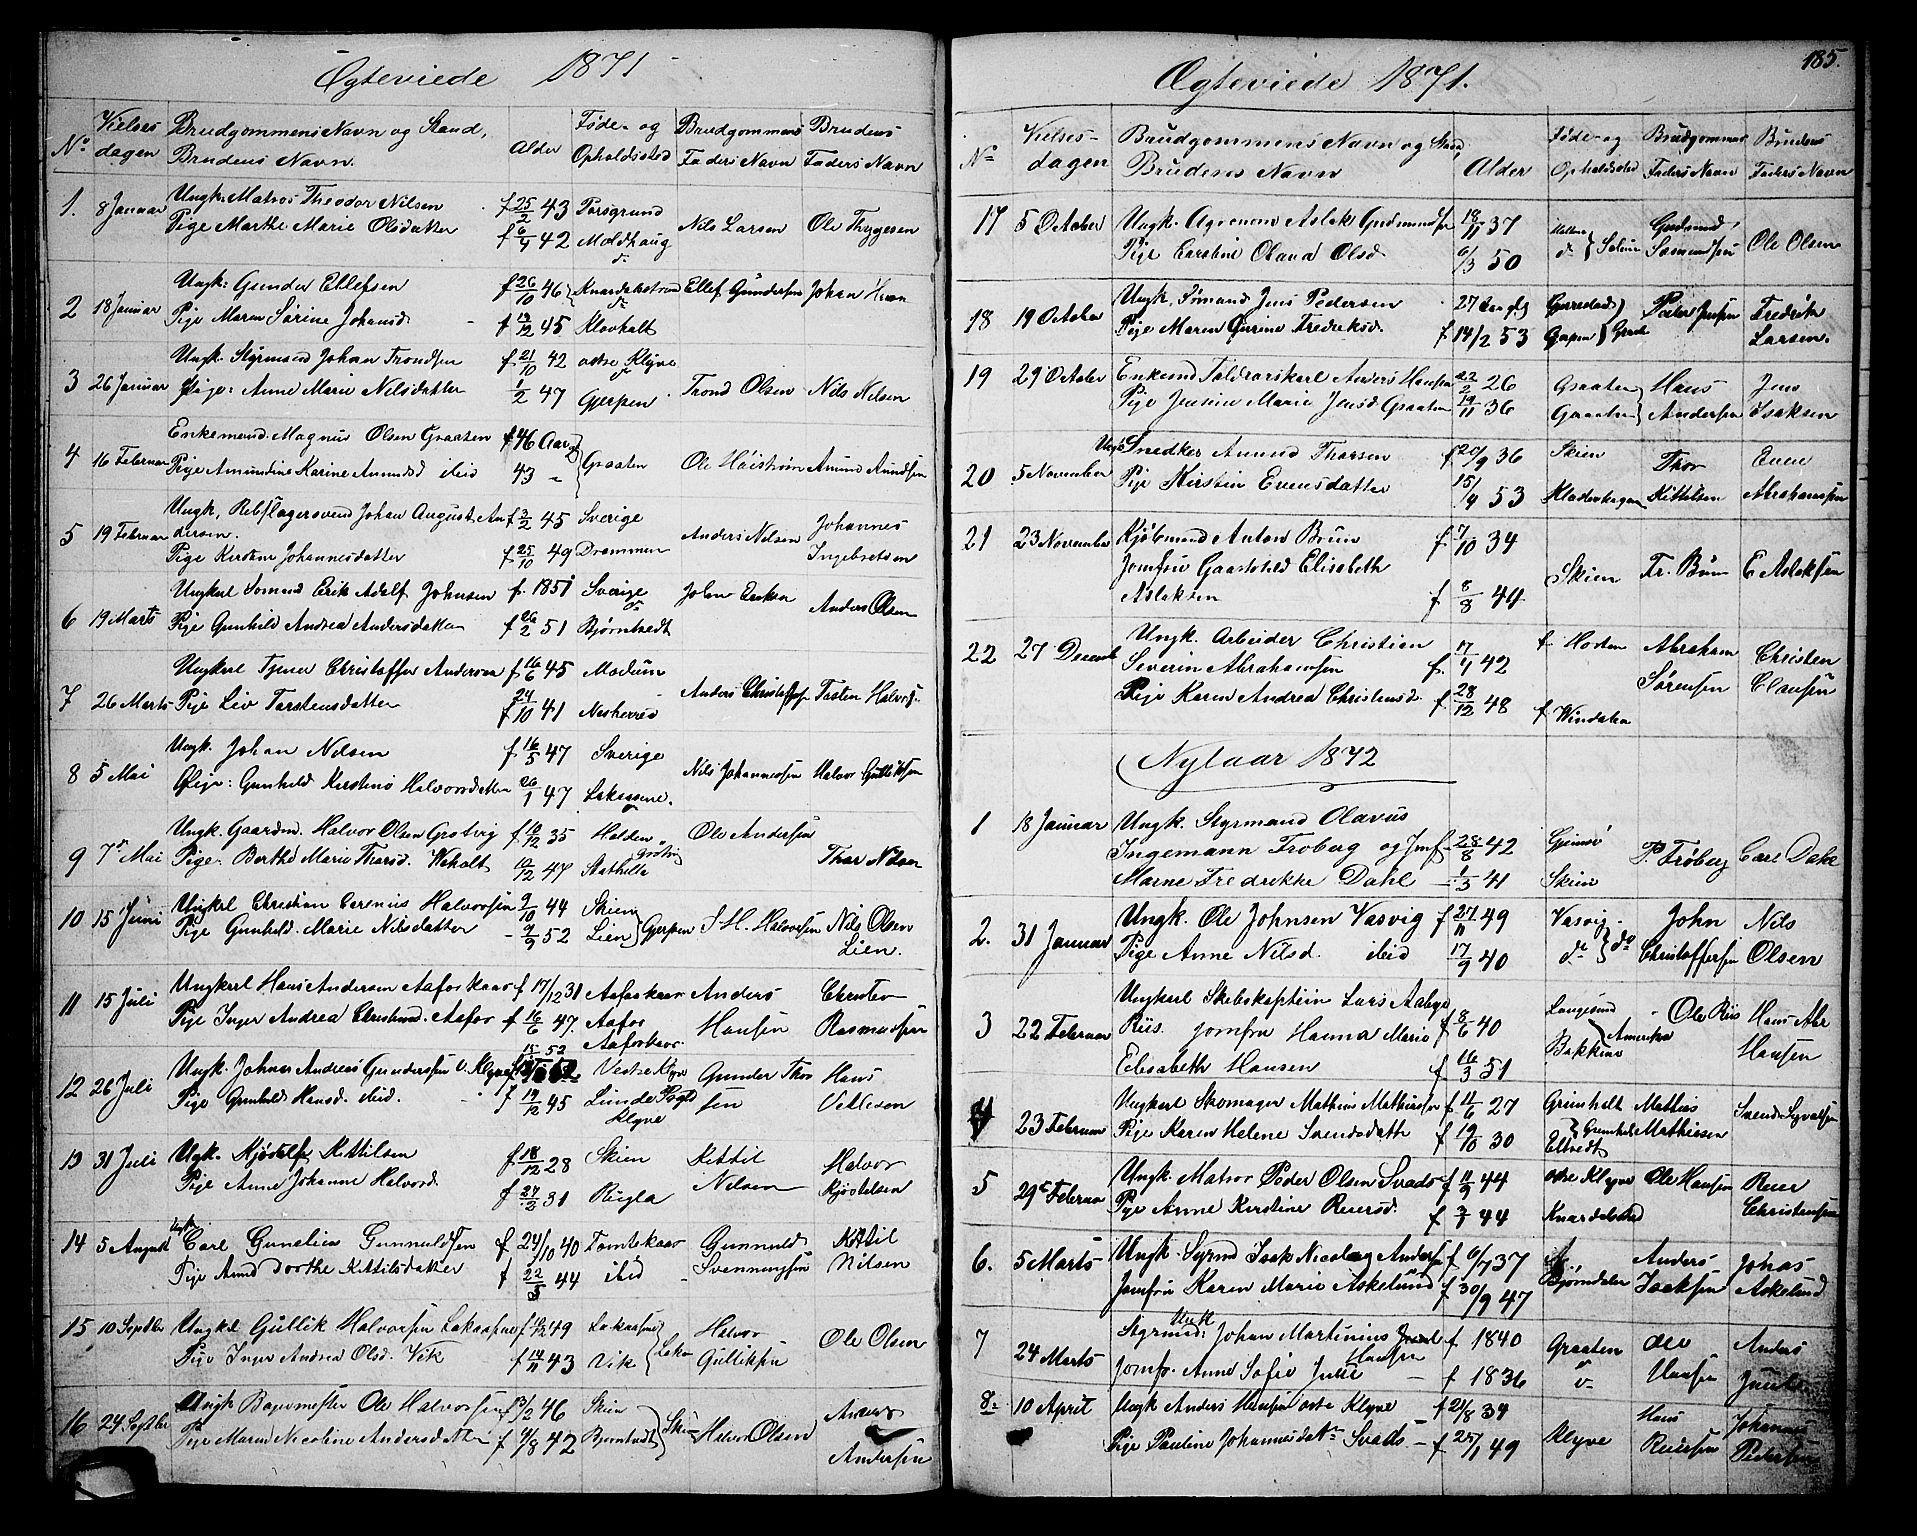 Ægteviede 1871
No Vielses dagen Brudgommens Navn og Stand, Brudens Navn. Alder Føde- og Opholdssted Brudgommens Faders Navn Brudens Faders Navn
1. 8 Januar Ungk. Matros Theodor Nilsen f 25/2 43 Porsgrund Nils Larsen Ole Thygesen
Pige Marthe Marie Olsdatter f 6/4 42 Moldhaug
2 18 Januar Ungk: Gunder Ellefsen f 26/10 46 Knardalsstrand Ellef Gundersen Johan
Pige Maren Sørine Johansd. f 12 45 Klovholt
3 26 Januar Ungk. Styrmand Johan Trondsen f. 21/10 42 østre Klyve Trond Olsen Nils Nilsen
Pige: Anne Marie Nilsdatter 1/2 47 Gjerpen
4 16 Februar Enkemand. Magnus Olsen Graaten f 46 Aar Graaten Ole Amund Amundsen
Pige Amundine Karine Amundsd ibid 43 "
5 19 Februar Ungk, Rebslagersvend Johan August An f 3/2 45 Sverige Anders Nilsen Johannes
dersen.
Pige Kirstine Johannesdatter f 25/10 49 Drammen Ingebretsen
6 19 Marts Ungkarl Sømand Erik Adolf Johnsen f. 1851 Sverige John Erikson Anders Olsen
Pige Gunhild Andrea Andersdatter f 26/2 51 Bjørntvedt
7 26 Marts Ungkarl Tjener Christoffer Andersen f 16/6 45 Modum Anders Christoffers Tosten Halvors.
Pige Liv Torstensdatter f 24/10 41
8 5 Mai Ungk. Johan Nilsen f 16/5 47 Sverige Nils Johannessen Halvor Gulliksen
Pige: Gunhild Kirstine Halvorsdatter 26/1 47
9 7de Mai Ungk. Gaardm. Halvor Olsen Grotvig f 10/12 35 Holden Ole Andersen Thor Nilsen
Pige. Berthe Marie Thorsd. Veholt 10/12 47 Stathelle
10 15 Juni Ungkl Christian Cerenius Halvorsen 9/10 44 Skien Gjerpen S. H. Halvorsen Nils Olsen
Pige Gunhild. Marie Nilsdatter 9/9 52 Lien Lien.
11 15 Juli Ungkarl Hans Andersen Aafoskaas f 17/12 31 Aafoskaas Anders Christen
Pige Inger Andrea Christensd. Aafos f 16/6 47. Aafos Hansen Rasmussen
Aafoskaas
12 26 Juli Ungk. Johan Andreas Gundersen v. Klyve 15 52 Vestre Klyve Gunder Thor Hans
Pige Gunhild Hansd. ibid. f 19/12 45 Lunde sen Vetlesen
Klyve
13 31 Juli Ugk. Kjøstolf Kittilsen f 18/12 28 Skien Kittil Halvor
Pige Anne Johanne Halvord. f. 27/2 31 Rugla Nilsen Kjøstelsen
14 5 August Ungk. Carl Gunelius Gunnuldsen f 24/10 40 Tomtekaas Gunnuld Kittil
Pige Anne Dorthe Kittilsdatter f 22/5 44 ibid Svenningsen Nilsen
15 10 Septbr Ungkl Gullik Halvorsen 49 Halvor Ole Olsen
Pige Inger Andrea Olsd. Vik f 14/11 43 Vik Gulliksen
16 24 Septbr Ungk Ole Halvorsen f 3/2 46 Skien Halvor Olsen Anders
Pige Maren Nicoline Andersdatter f 4/8 42 Bjørntvedt Andersen
185.
Ægteviede 1871.
No Vielses-dagen Brudgommens Navn og Stand, Brudens Navn Alder Føde- og Opholdssted Brudgommens Faders Navn Brudens Faders Navn
17 5 October Ungk. Aslak Gudmundsen 18/11 37 Solum Gudmund Ole Olsen
Pige Carstine Olava Olsd. 6/3 50
18 19 October Ungk, Sømand Jens Pedersen 27 Gjerrestad Peder Jensen Fredrik
Pige Maren Gurine Fredriksd. f 14/2 53 Larsen.
19 29 October Enkemd Toldrorskarl Anders Hansen 22/2 26 Graaten Hans Jens
Pige Jensine Marie Jensd Graaten 19/11 36 Graaten Andersen Isaksen
20 5 November Ungk Snedker Amund Thorsen f 20/9 36 Skien Thor Even
Pige Kirstin Evensdatter 15/4 53 Kittilsen Abrahamsen
21 23 November Kjøbmand Anton Bruun f. 7/10 34 Skien Fr. Bruun E Aslaksen
Jomfru Gaarthild Elisabeth
Aslaksen f 8/8 44
22 27 Decemb Ungk. Arbeider Christian 17 f Horten Abraham Christen
Severin Abrahamsen f. 4 42 Sørensen Clausen
Pige Karen Andrea Christensd. f 28/12 48 f
Nytaar 1872
1 18 Januar Ungk. Styrmand Olavus
Ingemann Froberg og Jmf 28/8 42 Gjemsø P. Frøberg Carl Dahl
Marne Fredrikke Dahl 1/3 41 Skien
2. 31 Januar Ungk. Ole Johnsen Vasvig f 27/11 49 Vasvig John Nils
Pige Anne Nilsd. ibid 17/9 40 do Christoffersen Olsen
3 22 Februar Ungkarl Skibskaptein Lars Aabye Langesund Ole Riis Hans Abr
Riis. Jomfru Hanna Marie f 8/6 40 Bakken Amerika Hansen
Elisabeth Hansen f 16/3 51
4 23 Februar Ungkarl Skomager Mathias Mathiassen f 11/6 27 Grimholt Mathias Svend
Pige Karen Helene Svendsdatter f 19/10 30 Mathissen
5 29de Februar Ungk. Matros Peder Olsen Svads f 11/9 44 østre Klyve Ole Hansen Reier
Pige Anne Kirstine Reiersd. f 44 Knardalstrand Christensen
6. 5 Marts Ungk. Syrmd Isak Nicolay Andersen f 6/7 37 Anders Johas
Jomfru Karen Marie Askelund f 30/9 47 Bjørndalen Isaksen Askelund
7 24 Marts Ungk Styrmd: Johan Martinius f 1840 Graaten Ole Anders
Hansen
Jomfr. Anne Sofie Julie f 1836 Hansen
8. 10 April Ungk Anders Hansen østre Klyve f 21/8 34 Klyve Hans Johannes
Pige Pauline Johannesdatter Svads f 25/1 49 Reiersen Pedersen